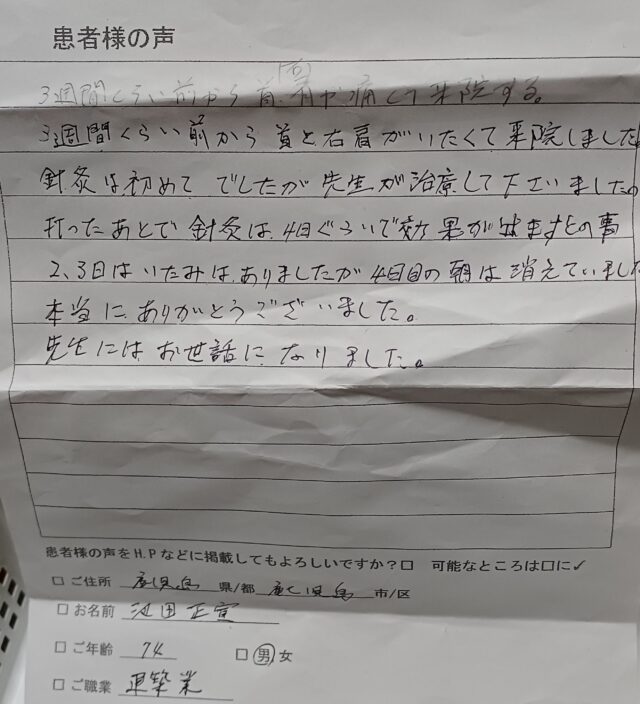 患者様の声
(右)
3週間くらい前から首、肩が痛くて来院する。
3週間くらい前から首と右肩がいたくて来院しました
針灸は初めてでしたが先生が治療して下さいました。
打ったあとで針灸は、4日ぐらいで効果が出ますとの事
2、3日はいたみは、ありましたが4日目の朝は消えていました
本当にありがとうございました。
先生にはお世話になりました。
患者様の声をH.Pなどに掲載してもよろしいですか?□ 可能なところは□に✓
□ご住所 鹿児島 県/都 鹿児島 市/区
□お名前 池田正宣
□ご年齢 74 □男・女
□ご職業 建築業